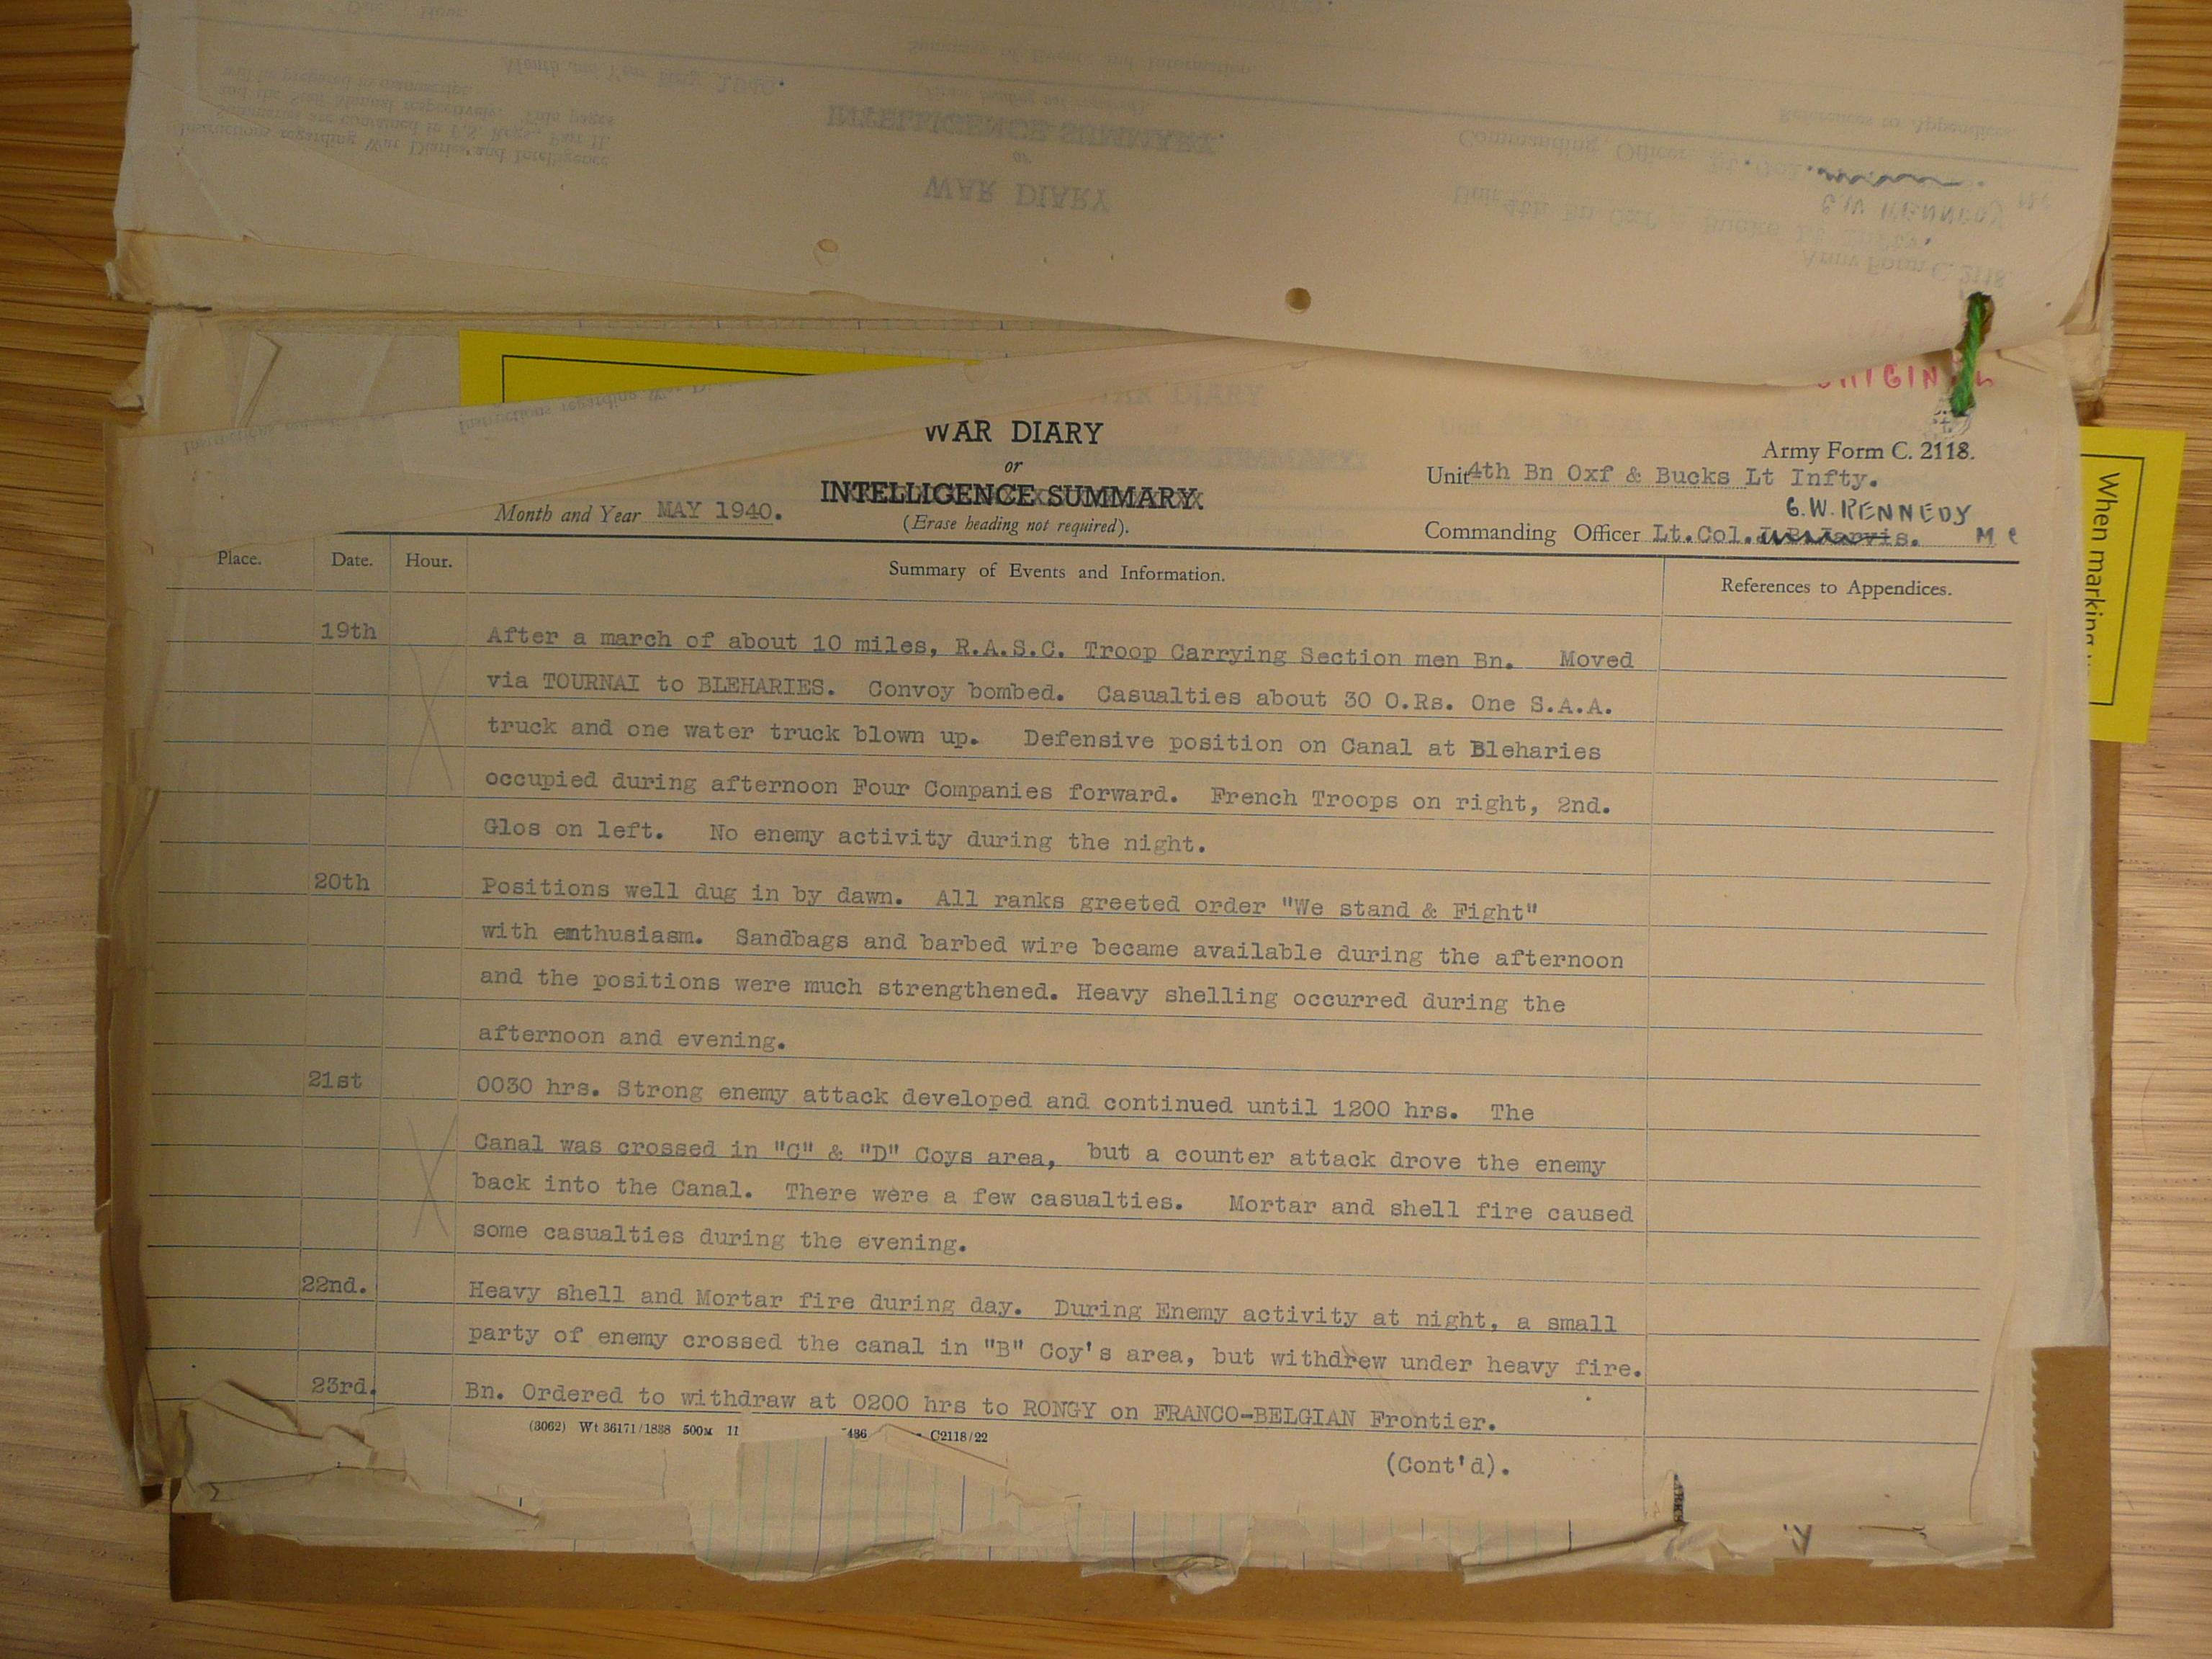 ORIGINAL
WAR DIARY
or
INTELLIGENCE SUMMARY.
(Erase heading not required).
Month and Year MAY 1940.
Army Form C. 2118.
Unit 4th Bn Oxf & Bucks Lt Infty.
G.W. KENNEDY
Commanding Officer Lt.Col. Jarvis. M C
When marking
Place. Date. Hour. Summary of Events and Information. References to Appendices.
19th After a march of about 10 miles, R.A.S.C. Troop Carrying Section men Bn. Moved
via TOURNAI to BLEHARIES. Convoy bombed. Casualties about 30 O.Rs. One S.A.A.
truck and one water truck blown up. Defensive position on Canal at Bleharies
occupied during afternoon Four Companies forward. French Troops on right, 2nd.
Glos on left. No enemy activity during the night.
20th Positions well dug in by dawn. All ranks greeted order "We stand & Fight"
with enthusiasm. Sandbags and barbed wire became available during the afternoon
and the positions were much strengthened. Heavy shelling occurred during the
afternoon and evening.
21st 0030 hrs. Strong enemy attack developed and continued until 1200 hrs. The
Canal was crossed in "C" & "D" Coys area, but a counter attack drove the enemy
back into the Canal. There were a few casualties. Mortar and shell fire caused
some casualties during the evening.
22nd. Heavy shell and Mortar fire during day. During Enemy activity at night, a small
party of enemy crossed the canal in "B" Coy's area, but withdrew under heavy fire.
23rd. Bn. Ordered to withdraw at 0200 hrs to RONGY on FRANCO-BELGIAN Frontier.
(3062) Wt 36171/1838 500M 11 C2118/22
(Cont'd).